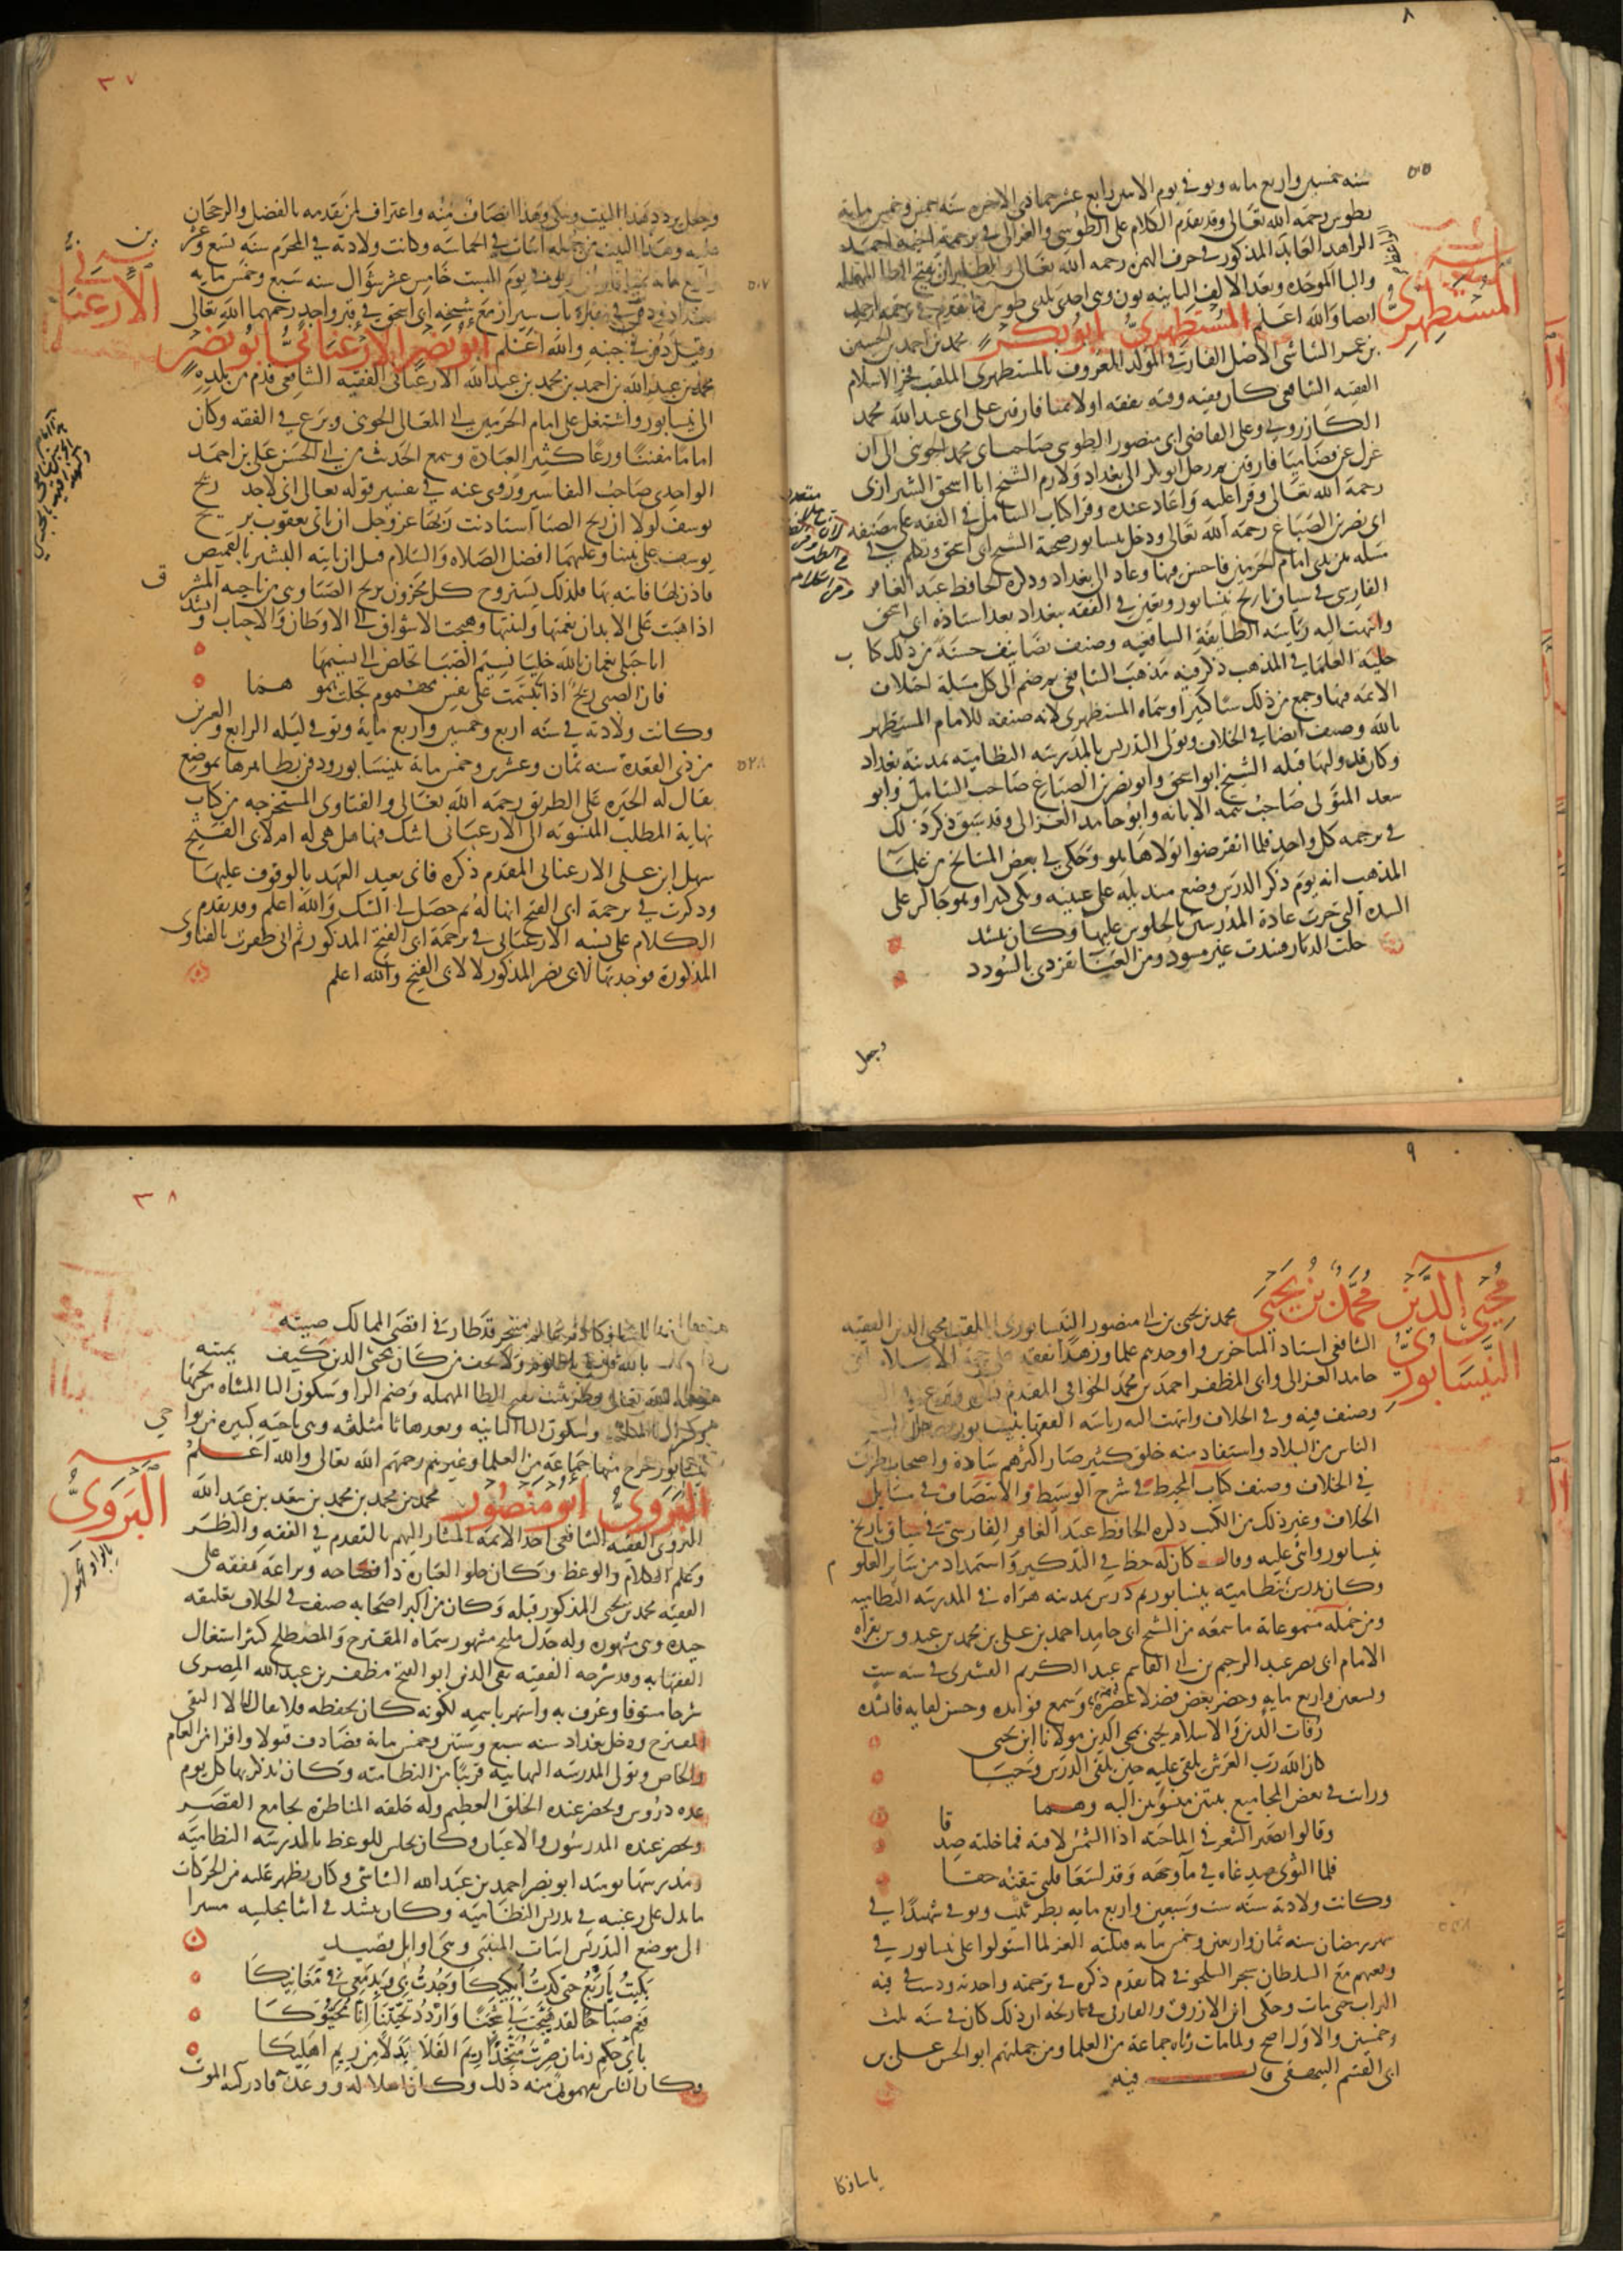 ٨
٥٠٥
سنه خمسين واربع مايه وتوفي يوم الاثنين رابع عشر جمادى الاخره سنه خمس وخمس مايه
بطوس رحمه الله تعالى وقد تقدم الكلام على الطوسي والغزالي في ترجمة اخيه احمد
الزاهد العابد المذكور في حرف الهمزه رحمه الله تعالى والطابران بفتح الطا المهمله
والبا الموحده وبعد الالف الثانيه نون وهي احدى بلدتي طوس كما تقدم في ترجمة احمد
ايضا والله اعلم المستظهري ابو بكر محمد بن احمد بن الحسين
المستظهري
بن عمر الشاشي الاصل الفارقي المولد المعروف بالمستظهري الملقب فخر الاسلام
الفقيه الشافعي كان فقيه وقته تفقه اولا بميافارقين على ابي عبد الله محمد
الكازروني وعلى القاضي ابي منصور الطوسي صاحب ابي محمد الجويني الى ان
عزل عن قضا ميافارقين ثم رحل ابو بكر الى بغداد ولازم الشيخ ابا اسحق الشيرازي
رحمه الله تعالى وقرا عليه واعاد عنده وقرا كتاب الشامل في الفقه على مصنفه
ابي نصر بن الصباغ رحمه الله تعالى ودخل نيسابور صحبة الشيخ ابي اسحق وتكلم في
مسله بين يدي امام الحرمين فاحسن فيها وعاد الى بغداد وذكره الحافظ عبد الغافر
الفارسي في سياق تاريخ نيسابور وتعين في الفقه ببغداد بعد استاذه ابي اسحق
وانتهت اليه رياسه الطايفه الشافعيه وصنف تصانيف حسنه من ذلك كتاب
حلية العلما في المذهب ذكر فيه مذهب الشافعي ثم ضم الى كل مسله اختلاف
الايمه فيها وجمع من ذلك شيا كثيرا وسماه المستظهري لانه صنفه للامام المستظهر
بالله وصنف ايضا في الخلاف وتولى التدريس بالمدرسه النظاميه بمدينة بغداد
وكان قد وليها قبله الشيخ ابو اسحق وابو نصر بن الصباغ صاحب الشامل وابو
سعد المتولي صاحب تتمه الابانه وابو حامد الغزالي وقد سبق ذكر ذلك
في ترجمه كل واحد فلما انقرضوا تولاها هو وحكى لي بعض المشايخ من علما
المذهب انه يوم ذكر الدرس وضع منديله على عينيه وبكى كثيرا وهو جالس على
السده التي جرت عادة المدرسين بالجلوس عليها وكان ينشد
خلت الديار فسدت غير مسود ومن العنا تفردي بالسودد
وجعل
٣٧
وجعل يردد هذا البيت ويبكي وهذا انصاف منه واعتراف لمن تقدمه بالفضل والرجحان
عليه وهذا البيت من جمله ابيات في الحماسه وكانت ولادته في المحرم سنه تسع وعشرين
واربع مايه بميافارقين وتوفي يوم السبت خامس عشر شوال سنه سبع وخمس مايه
٥٠٧
ببغداد ودفن في مقبرة باب شيراز مع شيخه ابي اسحق في قبر واحد رحمهما الله تعالى
وقيل دفن في جنبه والله اعلم ابو نصر الارغياني ابو نصر
الارغياني
محمد بن عبد الله بن احمد بن محمد بن عبد الله الارغياني الفقيه الشافعي قدم من بلده
الى نيسابور واشتغل على امام الحرمين ابي المعالي الجويني وبرع في الفقه وكان
اماما مفننا ورعا كثير العباده وسمع الحديث من ابي الحسن علي بن احمد
الواحدي صاحب التفاسير وروى عنه في تفسير قوله تعالى اني لاجد ريح
يوسف لولا ان ريح الصبا استاذنت ربها عز وجل ان ياتي يعقوب بريح
يوسف على نبينا وعليهما افضل الصلاه والسلام قبل ان ياتيه البشير بالقميص
فاذن لها فاتته بها فلذلك يستروح كل محزون بريح الصبا وهي من ناحيه المشرق
اذا هبت على الابدان نعمتها ولينتها وهيجت الاشواق الى الاوطان والاحباب وانشد
ايا جبلي نعمان بالله خليا نسيم الصبا تخلص الي نسيمها
فان الصبى ريح اذا تنسمت على نفس مهموم تجلت همومها
وكانت ولادته في سنه اربع وخمسين واربع مايه وتوفي ليله الرابع والعشرين
من ذي القعده سنه ثمان وعشرين وخمس ماية بنيسابور ودفن بظاهرها بموضع
٥٢٨
يقال له الحيره على الطريق رحمه الله تعالى والفتاوى المستخرجه من كتاب
نهاية المطلب المنسوبه الى الارغياني اشك فيها هل هي له ام لابي الفتح
سهل ابن علي الارغياني المقدم ذكره فاني بعيد العهد بالوقوف عليها
وذكرت في ترجمة ابي الفتح انها له ثم حصل لي الشك والله اعلم وقد تقدم
الكلام على نسبه الارغياني في ترجمة ابي الفتح المذكور ثم اني ظفرت بالفتاوى
المذكورة فوجدتها لابي نصر المذكور لا لابي الفتح والله اعلم
٩
محيي الدين محمد بن يحيى
النيسابوري
محمد بن يحيى بن ابي منصور النيسابوري الملقب محيي الدين الفقيه
الشافعي استاذ المتاخرين واوحدهم علما وزهدا تفقه على حجة الاسلام ابي
حامد الغزالي وابي المظفر احمد بن محمد الخوافي المقدم ذكره وبرع في الفقه
وصنف فيه وفي الخلاف وانتهت اليه رياسه الفقها بنيسابور ورحل اليه
الناس من البلاد واستفاد منه خلق كثير صار اكثرهم سادة واصحاب طرق
في الخلاف وصنف كتاب المحيط في شرح الوسيط والانتصاف في مسايل
الخلاف وغير ذلك من الكتب ذكره الحافظ عبد الغافر الفارسي في سياق تاريخ
نيسابور واثنى عليه وقال كان له حظ في التذكير واستمداد من ساير العلوم
وكان يدرس بنظاميه نيسابور ثم درس بمدينه هراه في المدرسه النظاميه
ومن جمله مسموعاته ما سمعه من الشيخ ابي حامد احمد بن علي بن محمد بن عبدوس بقراه
الامام ابي نصر عبد الرحيم بن ابي القاسم عبد الكريم القشيري في سنه ست
وتسعين واربع مايه وحضر بعض فضلا عصره وسمع فوايده وحسن لقايه فانشده
رفات الدين والاسلام يحيى بمحيي الدين مولانا ابن يحيى
كان الله رب العرش يلقي عليه حين يلقي الدرس وحيا
ورايت في بعض المجاميع بيتين منسوبين اليه وهما
وقالوا يصير الشعر في الما حيه اذا الشمس لاقته فما خلته صدقا
فلما التوى صدغاه في ما وجهه وقد لسعا قلبي تيقنته حقا
وكانت ولادته سنه ست وسبعين واربع مايه بطريثيث وتوفي شهيدا في
شهر رمضان سنه ثمان واربعين وخمس مايه قتلته الغز لما استولوا على نيسابور في
وقعتهم مع السلطان سنجر السلجوقي كما تقدم ذكره في ترجمته واخذته ودست في فيه
التراب حتى مات وحكى ابن الازرق الفارقي في تاريخه ان ذلك كان في سنه ثلث
وخمسين والاول اصح ولما مات رثاه جماعة من العلما ومن جملتهم ابو الحسن علي بن
ابي القسم البيهقي قال فيه
ياسافكا
٣٨
ياسافكا دم عالم متبحر قد طار في اقصى الممالك صيته
بالله قل لي يا ظلوم ولا تخف من كان محيي الدين كيف تميته
رحمه الله تعالى وطريثيث بضم الطا المهمله وفتح الرا وسكون اليا المثناه من تحتها
وكسر الثا المثلثه وسكون اليا الثانيه وبعدها ثا مثلثه وهي ناحيه كبيره من نواحي
نيسابور خرج منها جماعة من العلما وغيرهم رحمهم الله تعالى والله اعلم
البروي ابو منصور محمد بن محمد بن محمد بن سعد بن عبد الله
البروي
البروي الفقيه الشافعي احد الايمه المشار اليهم بالتقدم في الفقه والنظر
وعلم الكلام والوعظ وكان حلو العباره ذا فصاحه وبراعة تفقه على
الفقيه محمد بن يحيى المذكور قبله وكان من اكبر اصحابه صنف في الخلاف تعليقه
جيده وهي مشهوره وله جدل مليح مشهور سماه المقترح والمصطلح كثر اشتغال
الفقها به وقد شرحه الفقيه تقي الدين ابو الفتح مظفر بن عبد الله المصري
شرحا مستوفا وعرف به واشتهر باسمه لكونه كان يحفظه فلا يقال له الا التقي
المقترح ودخل بغداد سنه سبع وستين وخمس ماية فصادف قبولا وافرا من العام
والخاص وتولى المدرسه البهاييه قريبا من النظاميه وكان يذكر بها كل يوم
عده دروس ويحضر عنده الخلق العظيم وله حلقه المناظره بجامع القصر
ويحضر عنده المدرسون والاعيان وكان يجلس للوعظ بالمدرسه النظاميه
ومدرسها يوميذ ابو نصر احمد بن عبد الله الشاشي وكان يظهر عليه من الحركات
ما يدل على رغبته في تدريس النظاميه وكان ينشد في اثنا مجلسه مشيرا
الى موضع التدريس ابيات المتنبي وهي اوايل قصيد
بكيت ياربع حتى كدت ابكيكا وجدت بي وبدمعي في مغانيكا
فعم صباحا لقد هيجت لي شجنا واردد تحيتنا انا محيوكا
باي حكم زمان صرت متخذا ريم الفلا بدلا من ريم اهليكا
وكان الناس يفهمون منه ذلك وكان اهلا له ووعد به فادركه الموت